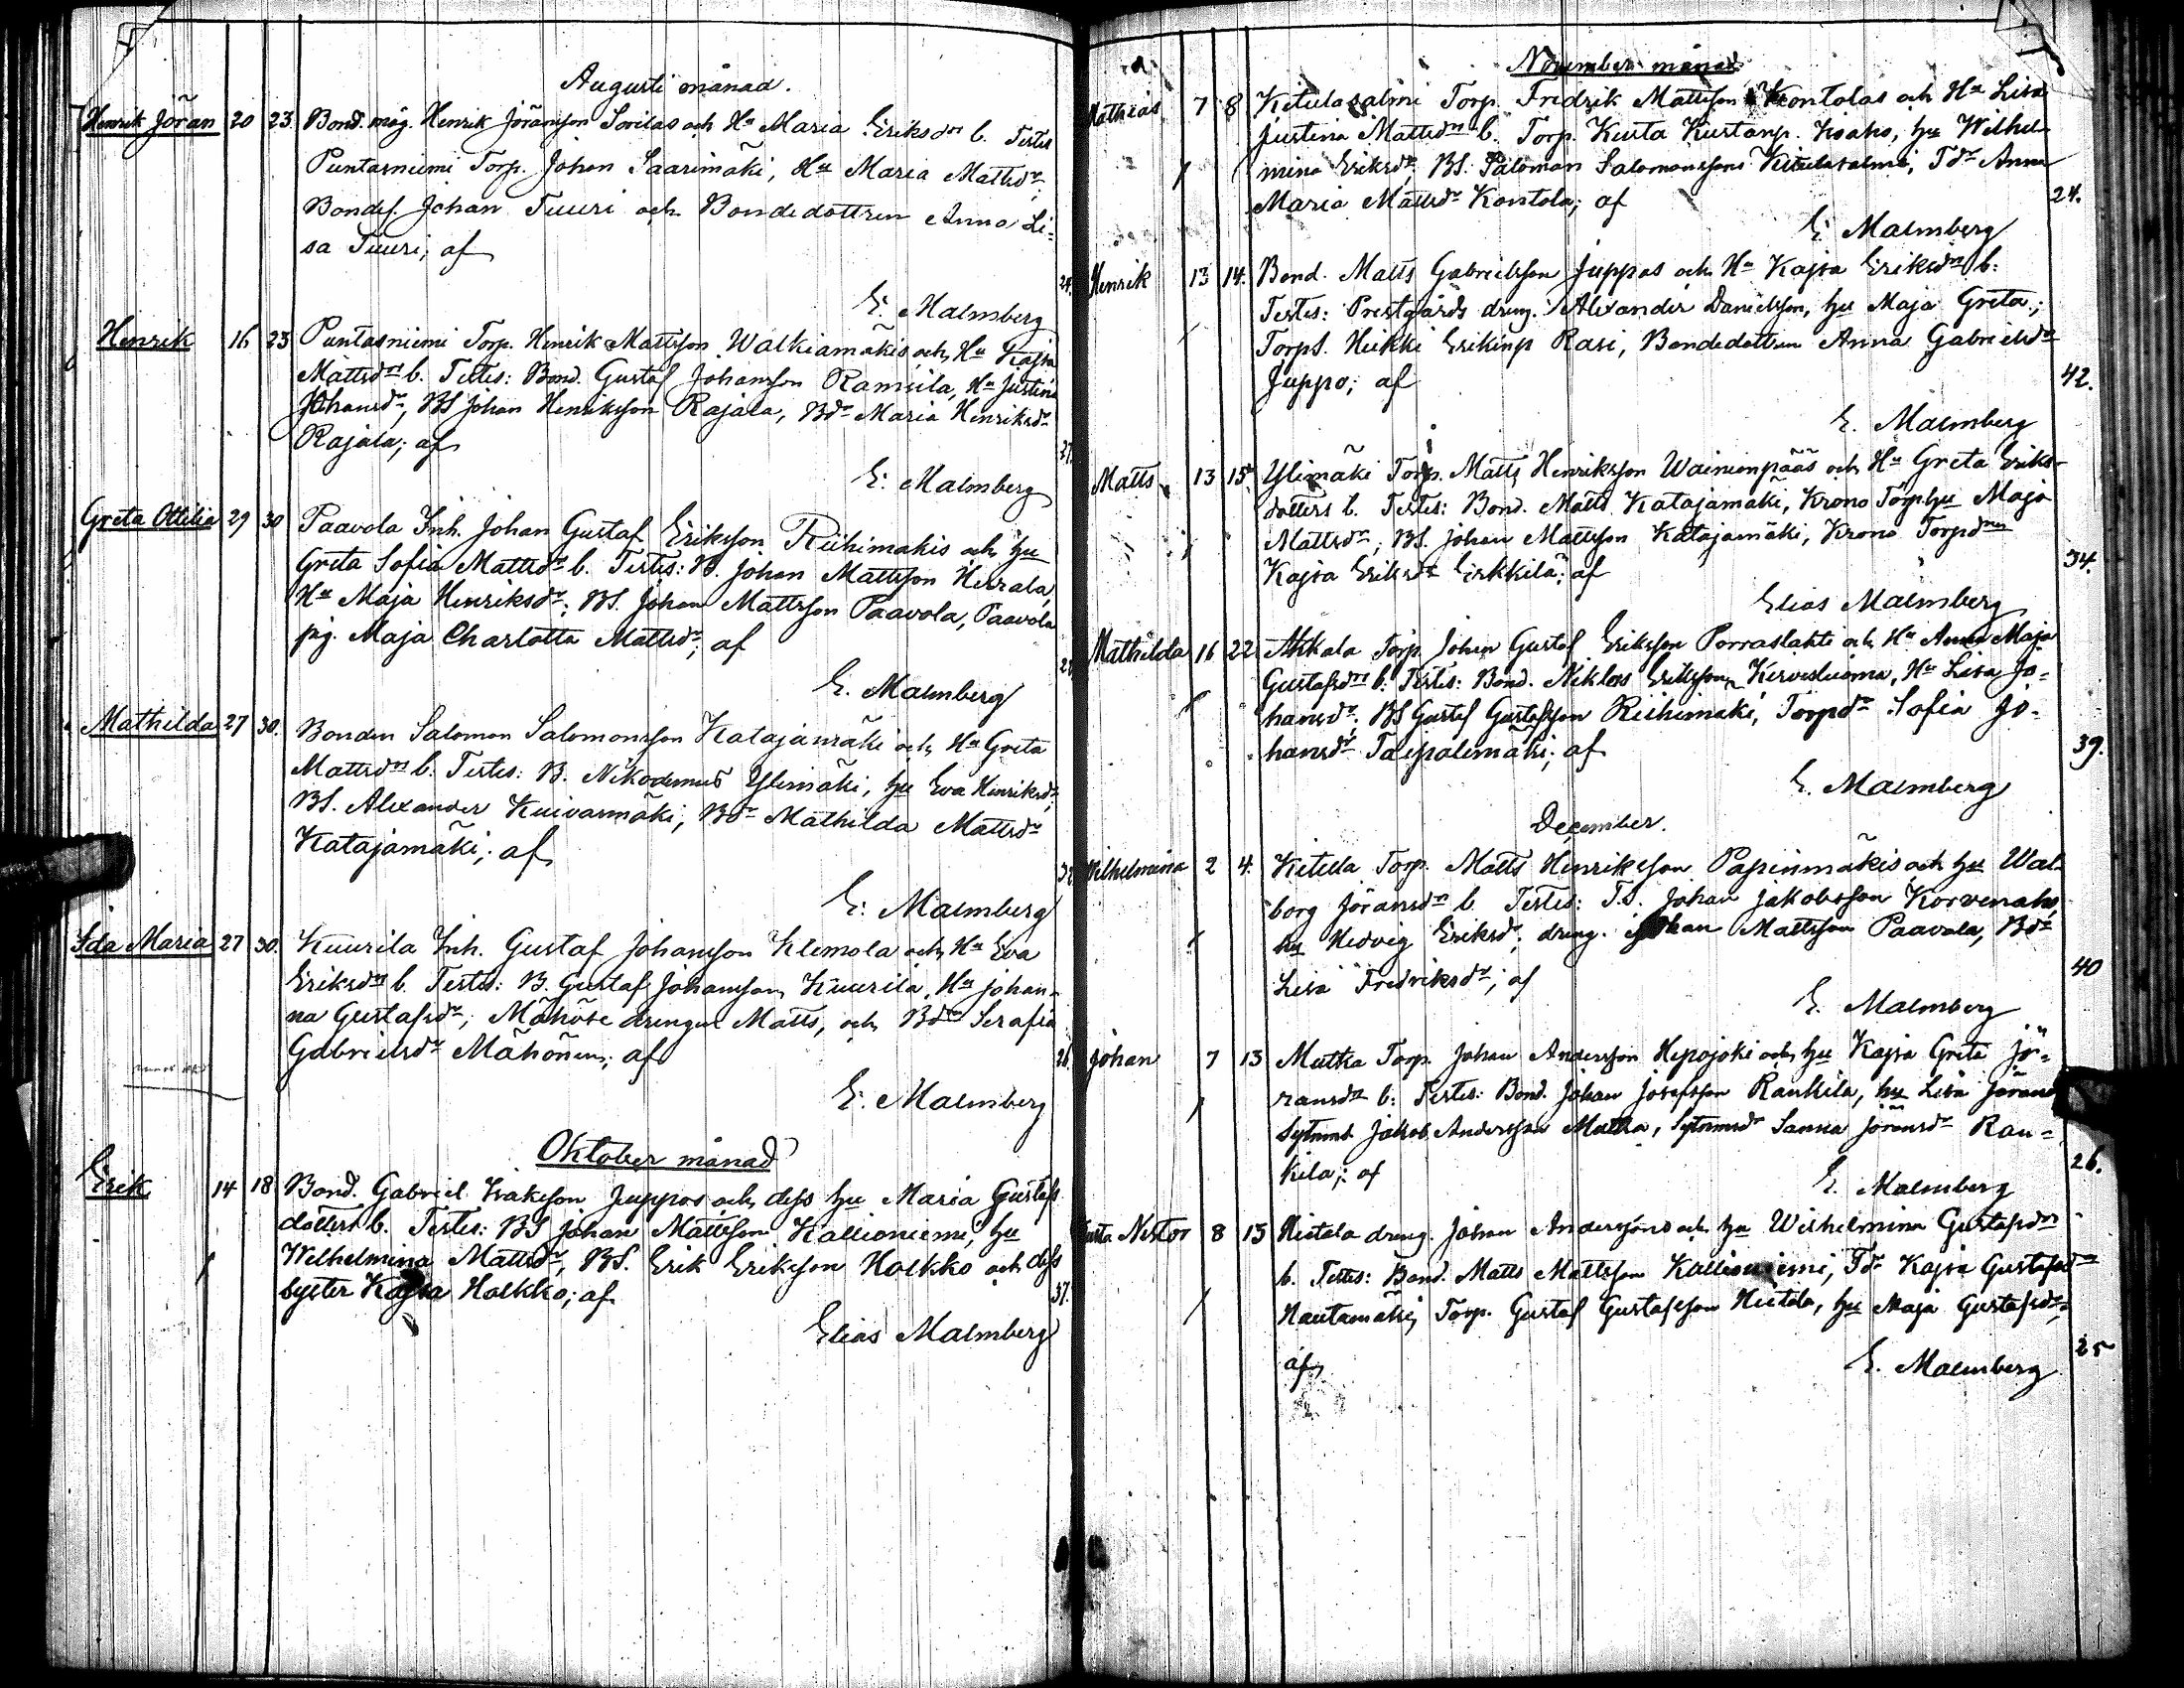 Augusti månad.
Henrik Jöran 20 23 Bond. måg. Henrik Jöransson Sorilas och Hu Maria Eriksdrs b. Testes
Puntarniemi Torp. Johan Saarimäki, Hu Maria Mattsdr;
Bondes. Johan Tuuri och Bondedottren Anna Li=
sa Tuuri; af
E. Malmberg 24.
Henrik 16 23 Puntasniemi Torp. Henrik Mattsson Walkiamäkis och Hu Kajsa
Mattsdrs b. Testes: Bond. Gustaf Johansson Ramsila, Hu Justina
Johansdr, BS Johan Henriksson Rajala, Bdr Maria Henriksdr
Rajala; af
E. Malmberg 27.
Greta Ottilia 29 30 Paavola Inh. Johan Gustaf Eriksson Riihimäkis och hu
Greta Sofia Mattsdrs b. Testes: B. Johan Mattsson Herrala,
Hu Maja Henriksdr; BS. Johan Mattsson Paavola, Paavola
pig. Maja Charlotta Mattsdr; af
E. Malmberg
Mathilda 27 30. Bonden Salomon Salomonsson Katajamäki och Hu Greta
Mattsdrs b. Testes: B. Nikodemus Ylimäki, hu Eva Henriksdr;
BS. Alexander Kuivasmäki, Bdr Mathilda Mattsdr
Katajamäki; af
E. Malmberg
Ida Maria 27 30. Kuurila Inh. Gustaf Johansson Klemola och Hu Eva
Eriksdrs b. Testes: B. Gustaf Johansson Kuurila, Hu Johan=
na Gustafsdr; Mähöse drengen Matts, och Bdr Serafia
Gabrielsdr Mähönen; af
E. Malmberg 26.
Oktober månad
Erik 14 18 Bond. Gabriel Isaksson Juppos och dess hu Maria Gustafs
dotters b. Testes: BS Johan Mattsson Kallioniemi, hu
Wilhelmina Mattsdr, BS. Erik Eriksson Holkko och dess
syster Kajsa Holkko; af
Elias Malmberg 37.
November månad
Mathias 7 8 Kitulasalmi Torp. Fredrik Mattsson Kontolas och Hu Lisa
Justina Mattsdrs b. Torp. Kusta Kustanp. Kiaho, hu Wilhel=
mina Eriksdr, BS. Salomon Salomonsson Kitulasalmi, Tdr Anna
Maria Mattsdr Kontola; af 24.
E. Malmberg
Henrik 13 14. Bond. Matts Gabrielsson Juppas och Hu Kajsa Eriksdrs b:
Testes: Prestgårds dreng. Alexander Danielsson, hu Maja Greta;
TorpS. Heikki Erikinp Rasi, Bondedottren Anna Gabrielsdr
Juppo; af 42.
E. Malmberg
Matts 13 15 Ylimäki Torp. Matts Henriksson Wainionpääs och Hu Greta Eriks=
dotters b. Testes: Bond. Matts Katajamäki, Krono Torp hu Maja
Mattsdr; BS. Johan Mattsson Katajamäki, Krono Torpdrn
Kajsa Eriksdr Erkkilä; af 34.
Elias Malmberg
Mathilda 16 22 Akkala Torp. Johan Gustaf Eriksson Porraslahti och Hu Anna Maja
Gustafsdrs b: Testes: Bond. Niklas Eriksson Kervesluoma, Hu Lisa Jo=
hansdr; BS Gustaf Gustafsson Riihimäki, Torpdr Sofia Jo=
hansdr Taipalemäki; af 39.
E. Malmberg
December.
Wilhelmina 2 4. Kitula Torp. Matts Henriksson Papinmäkis och hu Wal=
borg Jöransdrs b. Testes: T.S. Johan Jakobsson Korvenaho,
hu Hedvig Eriksdr; dreng. Johan Mattsson Paavola, Bdr
Lisa Fredriksdr; af 40
E. Malmberg
Johan 7 13 Mutka Torp. Johan Andersson Hepojoki och hu Kajsa Greta Jö=
ransdrs b: Testes: Bond. Johan Josefsson Rankila, hu Lisa Jörans
Sytnms. Jakob Andersson Mutka, Sytnmsdr Sanna Jöransdr Ran=
kila; af 26.
E. Malmberg
Kusta Nestor 8 13 Hietala dreng. Johan Anderssons och hu Wilhelmina Gustafsdrs
b. Testes: Bond. Matts Mattsson Kallioniemi, Tdr Kajsa Gustafsdr
Hautamäki, Torp. Gustaf Gustafsson Hietala, hu Maja Gustafsdr,
af 25
E. Malmberg